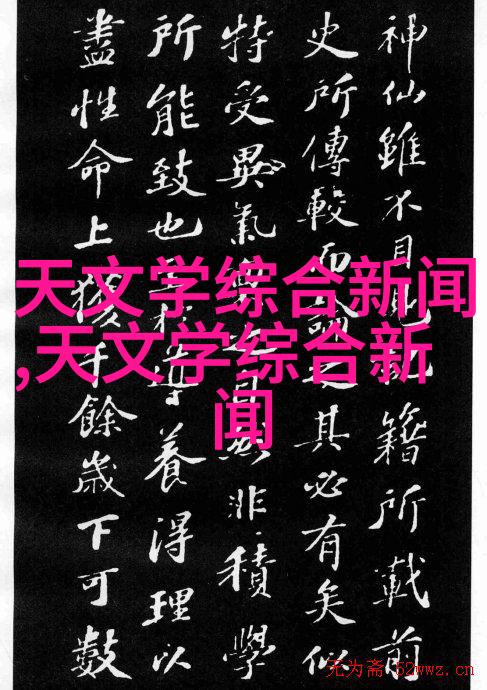 神仙雖不目見記籍所載前
史所傳較而論之其必有矣似
特受異氣稟之自然非積學
所能致也至於導養得理以
盡性命上獲千餘歲下可數
天文学综合新闻
,天文学综合新
闻
无为斋·52wwz.cn